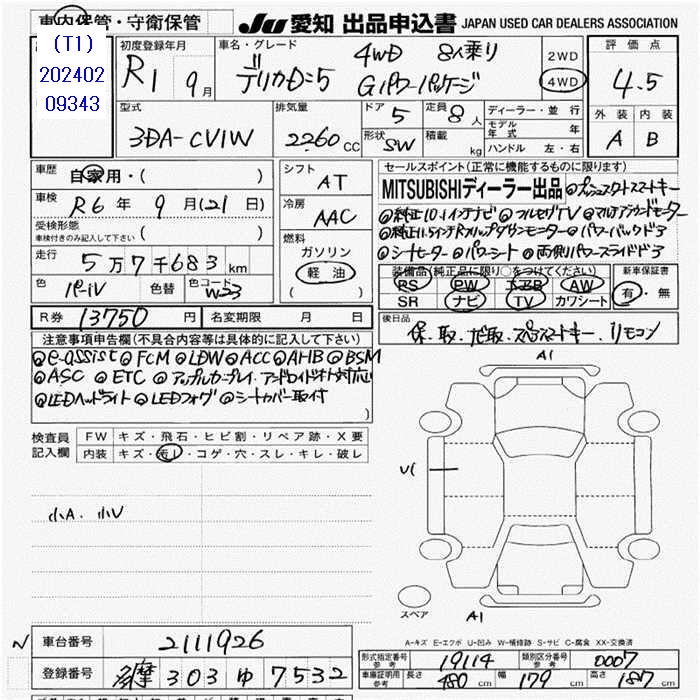 車内保管・守衛保管
JU 愛知 出品申込書 JAPAN USED CAR DEALERS ASSOCIATION
(T1)
202402
09343
初度登録年月
R1 9月
車名・グレード
デリカD:5 4WD 8人乗り
Gパワーパッケージ
2WD
4WD
評価点
4.5
外装 内装
A B
型式
3DA-CV1W
排気量
2260 CC
ドア 5
形状 SW
定員 8人
積載 kg
ディーラー・並行
モデル年式 年
ハンドル 左・右
車歴
自家用・( )
車検
R6年 9月(21日)
受検形態
車検付きのみ記入して下さい ( )
走行
5万7千683km
色 パール 色替 色コード W23
シフト
AT
冷房
AAC
燃料
ガソリン
軽油
( )
セールスポイント(正常に機能するものに限ります)
MITSUBISHIディーラー出品 ◎プッシュスタートスマートキー
◎純正10.1インチナビ ◎フルセグTV ◎マルチアラウンドモニター
◎純正11.5インチRフリップダウンモニター ◎パワーバックドア
◎シートヒーター ◎パワーシート ◎両側パワースライドドア
装備品(純正品に限り○をつけてください)
PS PW エアB AW
SR ナビ TV カワシート
新車保証書
有・無
R券 13750円 名変期限 月 日
後日品
保、取、ナビ取、スペアスマートキー、リモコン
注意事項申告欄(不具合内容等は具体的に記入して下さい)
◎e-assist ◎FCM ◎LDW ◎ACC ◎AHB ◎BSM
◎ASC ◎ETC ◎アップルカープレイ、アンドロイドオート対応
◎LEDヘッドライト ◎LEDフォグ ◎シートカバー取付
)
検査員
記入欄
FW キズ・飛石・ヒビ割・リペア跡・X要
内装 キズ・汚レ・コゲ・穴・スレ・キレ・破レ
小A、小U
A1
U(
スペア
A1
A-キズ E-エクボ U-凹み W-補修跡 S-サビ C-腐食 XX-交換済
N 車台番号 2111926
登録番号 多摩 303 ゆ 7532
形式指定番号 参考 19114 類別区分番号 参考 0007
車庫証明用 参考 長さ 480cm 幅 179cm 高さ 187cm